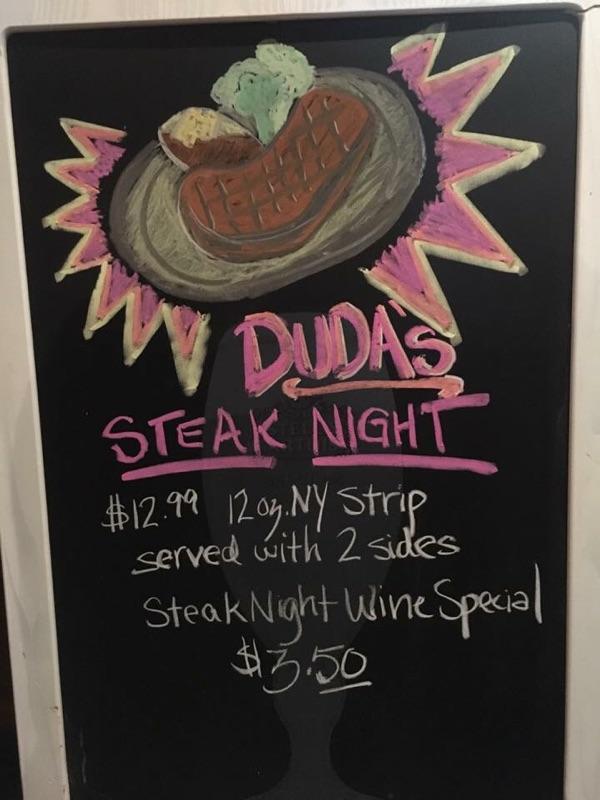 DUDA'S
STEAK NIGHT
$12.99 12oz. NY Strip
served with 2 sides
Steak Night Wine Special
$3.50